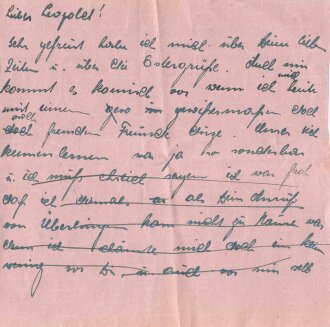 Lieber Leopold!
Sehr gefreut habe ich mich über Deine lieben
Zeilen u. über die Ostergrüße. Auch mir
kommt es komisch vor wenn ich heute
mit einem gewissermaßen doch
noch fremden Freunde
kennenlernen war ja so sonderbar
u. ich muß ehrlich sagen ich war froh
daß ich damals als Dein Anruf
von Überlingen kam nicht zu Hause war
denn ich schämte mich doch ein klein
wenig vor Dir u. auch vor mir selb